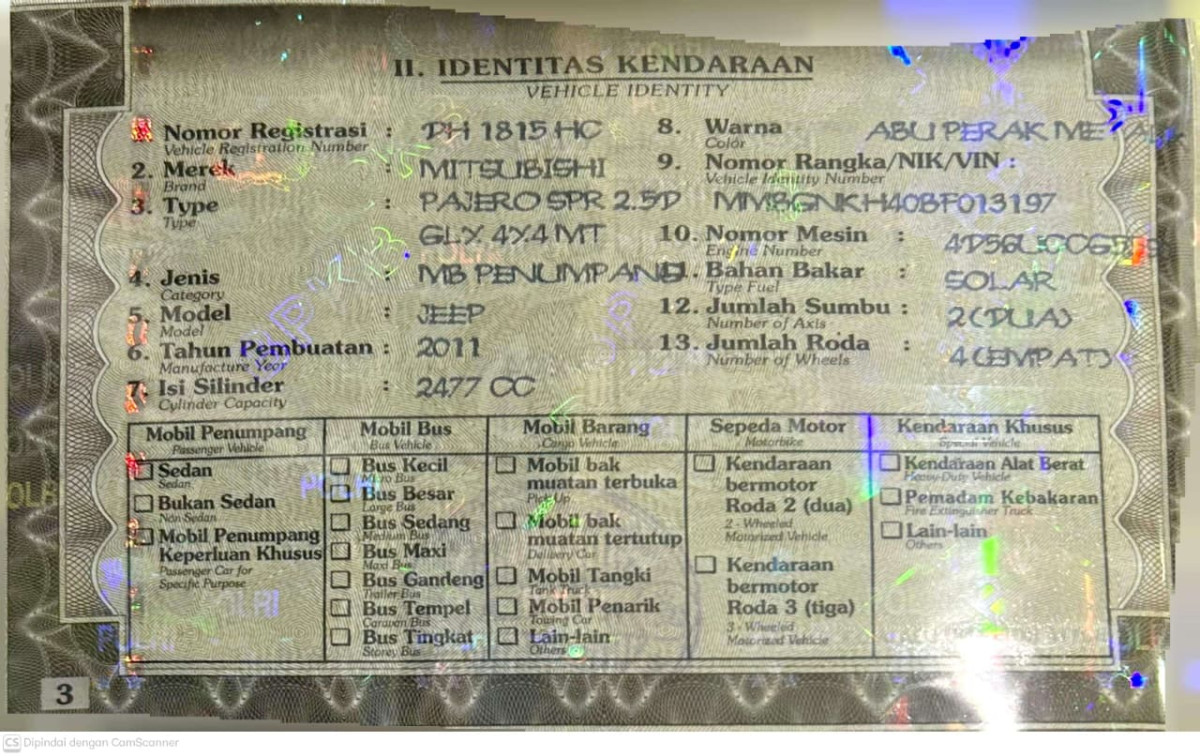 II. IDENTITAS KENDARAAN
VEHICLE IDENTITY
Nomor Registrasi : DH 1815 HC
Vehicle Registration Number
2. Merek : MITSUBISHI
Brand
3. Type : PAJERO SPR 2.5D
Type
GLX 4X4 MT
4. Jenis : MB PENUMPANG
Category
5. Model : JEEP
Model
6. Tahun Pembuatan : 2011
Manufacture Year
7. Isi Silinder : 2477 CC
Cylinder Capacity
8. Warna ABU PERAK
Color
9. Nomor Rangka/NIK/VIN :
Vehicle Identity Number
MMBGNKH40BF013197
10. Nomor Mesin :
Engine Number
11. Bahan Bakar : SOLAR
Type Fuel
12. Jumlah Sumbu : 2 (DUA)
Number of Axis
13. Jumlah Roda : 4 (EMPAT)
Number of Wheels
Mobil Penumpang
Passenger Vehicle
Sedan
Sedan
Bukan Sedan
Non Sedan
Mobil Penumpang
Keperluan Khusus
Passenger Car for
Specific Purpose
Mobil Bus
Bus Vehicle
Bus Kecil
Micro Bus
Bus Besar
Large Bus
Bus Sedang
Medium Bus
Bus Maxi
Maxi Bus
Bus Gandeng
Trailer Bus
Bus Tempel
Caravan Bus
Bus Tingkat
Storey Bus
Mobil Barang
Cargo Vehicle
Mobil bak
muatan terbuka
Pick Up
Mobil bak
muatan tertutup
Delivery Car
Mobil Tangki
Tank Truck
Mobil Penarik
Towing Car
Lain-lain
Others
Sepeda Motor
Motorbike
Kendaraan
bermotor
Roda 2 (dua)
2 - Wheeled
Motorized Vehicle
Kendaraan
bermotor
Roda 3 (tiga)
3 - Wheeled
Motorized Vehicle
Kendaraan Khusus
Special Vehicle
Kendaraan Alat Berat
Heavy-Duty Vehicle
Pemadam Kebakaran
Fire Extinguisher Truck
Lain-lain
Others
3
CS Dipindai dengan CamScanner